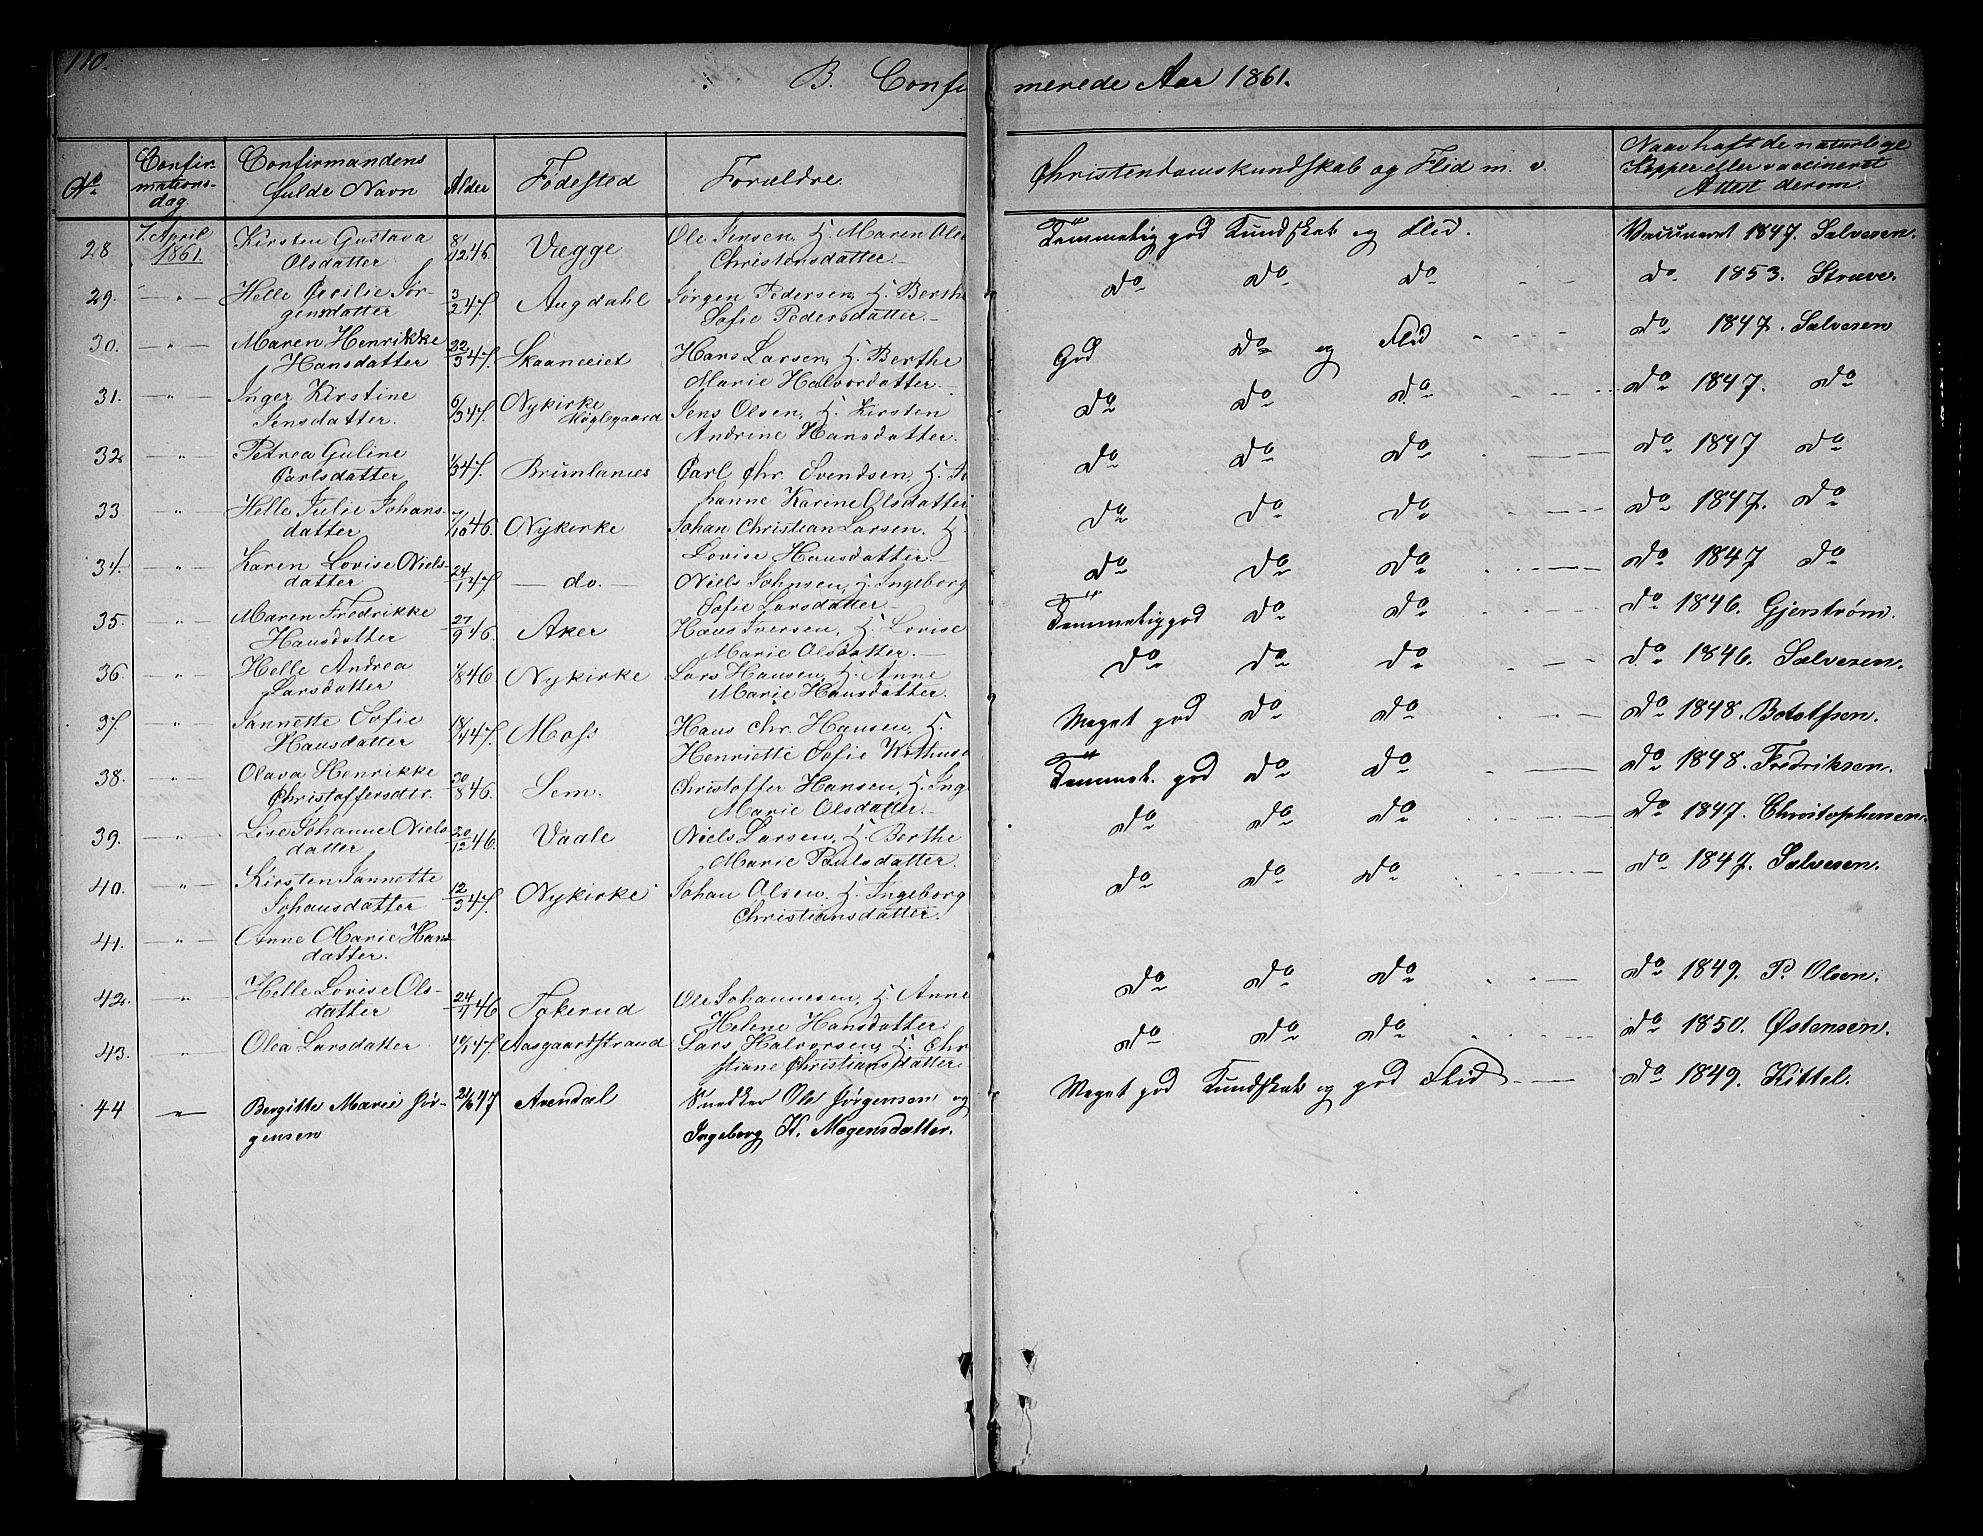 110.
B. Confirmerede Aar 1861.
No
Confirmations-dag.
Confirmandens fulde Navn
Alder
Fødested
Forældre
Christendomskundskab og Flid m. v.
Naar haft de naturlige Kopper eller vaccineret Attest derom.
28 7. April 1861. Kirsten Gustava Olsdatter 8/12 46. Vægge Ole Jensen, H. Maren Ole Christensdatter. Temmelig god Kundskab og Flid. Vaccineret 1847. Salvesen.
29. — " — Helle Cecilie Jørgensdatter 3/2 47. Augdahl Jørgen Pedersen, H. Berthe Sofie Pedersdatter. do do do do 1853. Struve.
30. — " — Maren Henrikke Hansdatter 22/3 47. Skaaneeiet Hans Larsen, H. Berthe Marie Halvorsdatter. God do og Flid do 1847. Salvesen
31. — " — Inger Kirstine Jensdatter. 6/3 47. Nykirke Møglegaard Jens Olsen, H. Kirsten Andrine Hansdatter. do do do do 1847. do
32 — " — Petrea Guline Carlsdatter 1/3 47. Brunlanæs Carl Chr. Svendsen, H. Jo hanne Karine Olsdatter do do do do 1847 do
33. " Helle Julie Johansdatter 7/10 46. Nykirke Johan Christian Larsen, H. Lovise Hansdatter. do do do do 1847. do
34. " Karen Lovise Nielsdatter 24/1 47. — do. — Niels Johnsen, H. Ingeborg Sofie Larsdatter. do do do do 1847 do
35. " Maren Fredrikke Hansdatter 27/9 46. Aker Hans Iversen, H. Lovise Marie Olsdatter. Temmelig god do do do 1846. Gjerstrøm.
36. " Helle Andrea Larsdatter 1/8 46 Nykirke Lars Hansen, H. Anne Marie Hansdatter. do do do do 1846. Salvesen.
37. " Jannette Sofie Hansdatter 18/4 47. Moss Hans Chr. Hansen, H. Henriette Sofie Meget god do do do 1848. Bototfsen.
38. " Olava Henrikke Christoffersdtr. 30/8 46. Sem. Christoffer Hansen, H. Ing Marie Olsdatter. Temmel. god do do do 1848. Fredriksen.
39. — " — Lise Johanne Nielsdatter 20/12 46. Vaale Niels Larsen, H. Berthe Marie Paulsdatter do do do do 1847. Christophersen.
40. — " — Kirsten Jannette Johansdatter 12/3 47. Nykirke Johan Olsen, H. Ingeborg Christiansdatter. do do do do 1847. Salvesen.
41. — " — Anne Marie Hansdatter.
42. " Helle Lovise Olsdatter 24/4 46 Fakerud Ole Johannesen, H. Anne Helene Hansdatter. do do do do 1849. P. Olsen.
43. " Olea Larsdatter 19/1 47. Aasgaartstrand Lars Halvorsen, H. Chr stiane Christiansdatter. do do do do 1850. Østensen.
44 — " — Bergitte Marie Jørgensen 24/6 47 Arendal Snedker Ole Jørgensen og Ingeborg K. Mogensdatter. Meget god Kundskab og god Flid do 1849. Kittel.